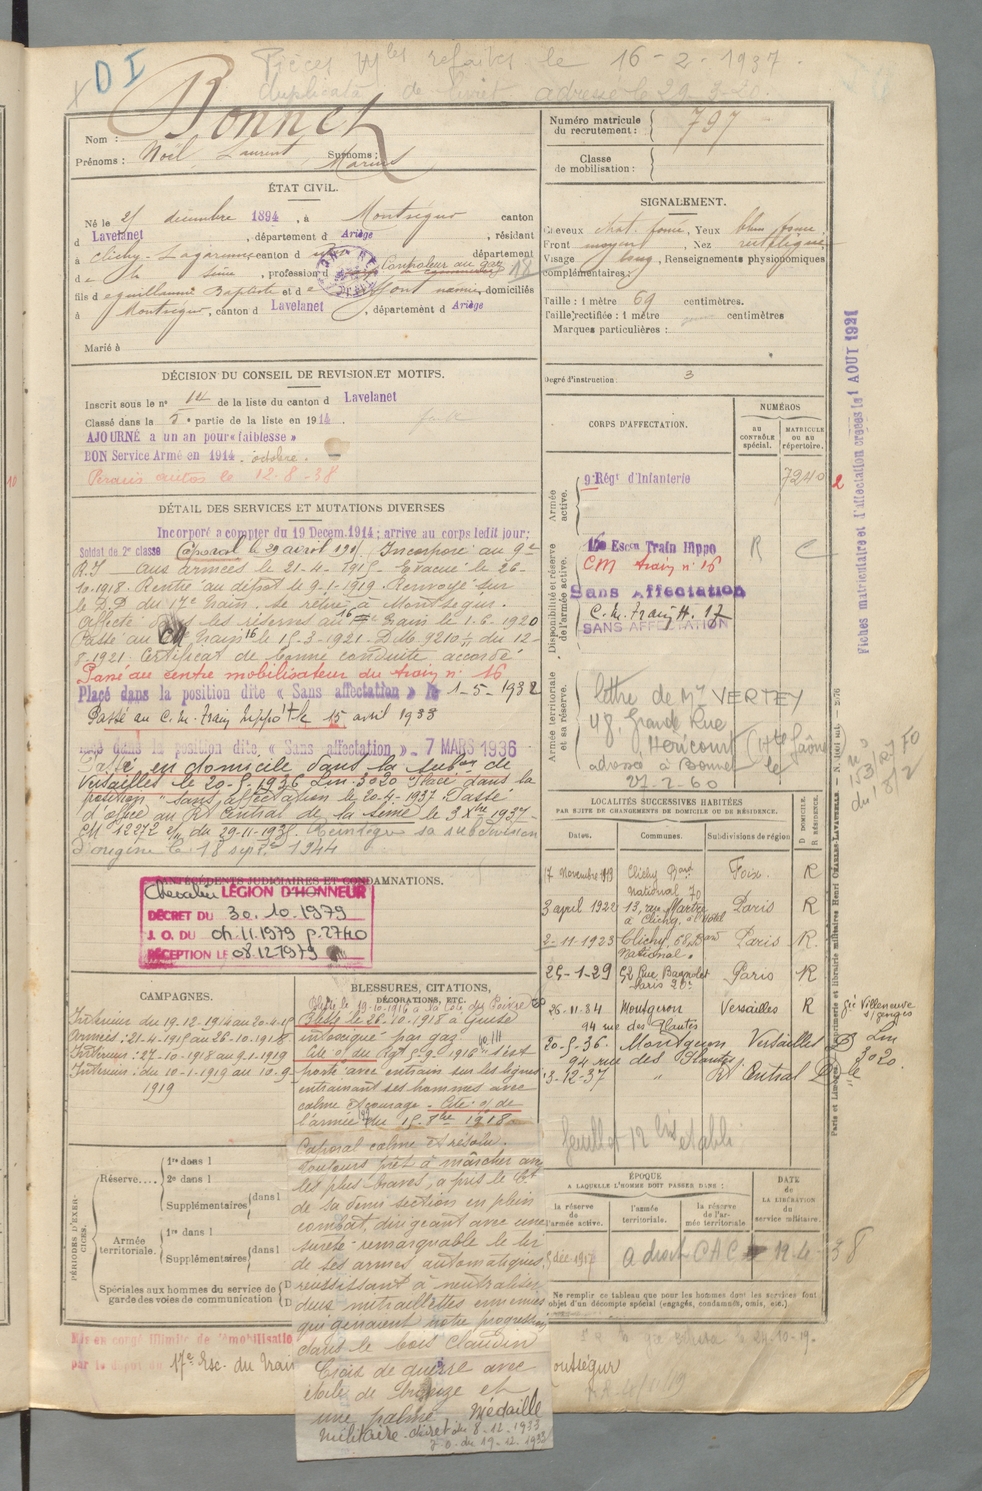 DI
Pièces Mles refaites le 16-2-1937.
duplicata de livret adressé le 29-3-20.
Nom : Bonnet
Prénoms : Noël, Laurent Surnoms : Marius
Numéro matricule du recrutement : 797
Classe de mobilisation :
ÉTAT CIVIL.
Né le 25 décembre 1894, à Montségur canton
d Lavelanet, département d Ariège, résidant
à Clichy-Lagarenne canton d département
d e la Seine, profession d Controleur au gaz 18
fils d e guillaume Baptiste et d e domiciliés
à Montségur, canton d Lavelanet, département d Ariège
Marié à
SIGNALEMENT.
Cheveux chat. foncé, Yeux bleu foncé,
Front moyen, Nez rectiligne
Visage long, Renseignements physionomiques
complémentaires :
Taille : 1 mètre 69 centimètres.
Taille rectifiée : 1 mètre centimètres
Marques particulières :
Degré d'instruction : 3
DÉCISION DU CONSEIL DE REVISION ET MOTIFS.
Inscrit sous le n° 14 de la liste du canton d Lavelanet
Classé dans la 5e partie de la liste en 1914.
AJOURNÉ a un an pour « faiblesse »
BON Service Armé en 1914. octobre.
Permis autos le 12-8-38
DÉTAIL DES SERVICES ET MUTATIONS DIVERSES
Incorporé a compter du 19 Décem. 1914; arrive au corps ledit jour;
Soldat de 2e classe Caporal le 29 avril 191 Incorporé au 9e
R.I aux armées le 21-4-1915- Evacué le 26-
10-1918. Rentré au dépôt le 9-1-1919. Renvoyé sur
le D.D du 17e train. se retire à Montségur.
Affecté dans les réserves au 16e Train le 1-6-1920
Passé au CM train 16 le 15-3-1921. D.M 9210 du 12-
8-1921. Certificat de bonne conduite accordé
Passé au centre mobilisateur du train n° 16
Placé dans la position dite « Sans affectation » le 1-5-1932
Passé au C.M. Train hippo 17 le 15 avril 1933
Placé dans la position dite, « Sans affectation, » - 7 MARS 1936
Passé en domicile dans la subon de
Versailles le 20-5-1936 Lm. 3020 Placé dans la
position "sans affectation le 20-4-1937. Passé
d'office au Rt Central de la Seine le 3 Xbre 1937
CM 12272 du 29-11-1935. Réintégré sa subdivision
d'origine le 18 septbre 1944
CORPS D'AFFECTATION.
NUMÉROS
AU CONTRÔLE spécial.
MATRICULE OU AU répertoire.
Armée active.
9e Régt d'Infanterie
7240
Disponibilité et réserve de l'armée active.
16e Escon Train Hippo R C
CM train n° 16
Sans Affectation
C.M. Train H. 17
SANS AFFECTATION
Armée territoriale et sa réserve.
lettre de Mr VERTEY
48, Grande Rue
Héricourt (Hte Saône)
adressé à Bonnet le
22-2-60
n° 153/RJ FO
du 18/2
Fiches matriculaire et d'affectation créées le 1 AOUT 1921
ANTÉCÉDENTS JUDICIAIRES ET CONDAMNATIONS.
Chevalier LÉGION D'HONNEUR
DÉCRET DU 30.10.1979
J. O. DU 04.11.1979 p.2740
RÉCEPTION LE 08.12.1979
LOCALITÉS SUCCESSIVES HABITÉES
PAR SUITE DE CHANGEMENTS DE DOMICILE OU DE RÉSIDENCE.
Dates. Communes. Subdivisions de région D DOMICILE. R RÉSIDENCE.
17 Novembre 1919 Clichy Bard National 70 Foix. R
3 avril 1922 13, rue Martre à Clichy Paris R
2-11-1923 Clichy, 68 Bard National. Paris R.
25-1-29 52 Rue Bagnolet Paris 20e Paris R
26-11-34 Montgeron Versailles R Gie Villeneuve St georges
94 rue des Plantes
20-5-36. Montgeron Versailles D Lm 3020.
94 rue des Plantes
3-12-37 " Rt Central D
Feuillet 12 bis établi
CAMPAGNES.
Intérieur du 19-12-1914 au 20-4-15
Armées : 21-4-1915 au 26-10-1918
Intérieur : 27-10-1918 au 9-1-1919
Intérieur : du 10-1-1919 au 10-9-
1919
BLESSURES, CITATIONS, DÉCORATIONS, ETC.
Blessé le 19-10-1916 à la Côte du Poivre
Blessé le 26-10-1918 à Guise
intoxiqué par gaz
Cité o/ du Rgt 1916 " s'est
porté avec entrain sur les lignes
entrainant ses hommes avec
calme et courage. Cité o/ de
l'armée du 15. 8bre 1918
Caporal calme et résolu.
toujours prêt à marcher avec
les plus braves, a pris le Ct
de sa demi section en plein
combat dirigeant avec une
sureté remarquable le tir
de ses armes automatiques
réussissant à neutraliser
deux mitraillettes ennemies
qui gênaient notre progression
dans le bois Claudin
Croix de guerre avec
étoile de bronze et
une palme Médaille
militaire - décret du 8-12-1933
J.O. du 19-12-1933
PÉRIODES D'EXERCICES.
Réserve.... 1re dans l
2e dans l
Supplémentaires dans l
Armée territoriale. 1re dans l
Supplémentaires dans l
Spéciales aux hommes du service de garde des voies de communication D D
ÉPOQUE
A LAQUELLE L'HOMME DOIT PASSER DANS :
la réserve de l'armée active.
l'armée territoriale.
la réserve de l'armée territoriale
DATE de LA LIBÉRATION du service militaire.
A droit CAC 12-4-38
Ne remplir ce tableau que pour les hommes dont les services font
objet d'un décompte spécial (engagés, condamnés, omis, etc.)
Mis en congé illimité de démobilisation
par le dépôt du 17e Esc. du Train
Montségur
Paris et Limoges. Imprimerie et librairie militaires Henri CHARLES-LAVAUZELLE